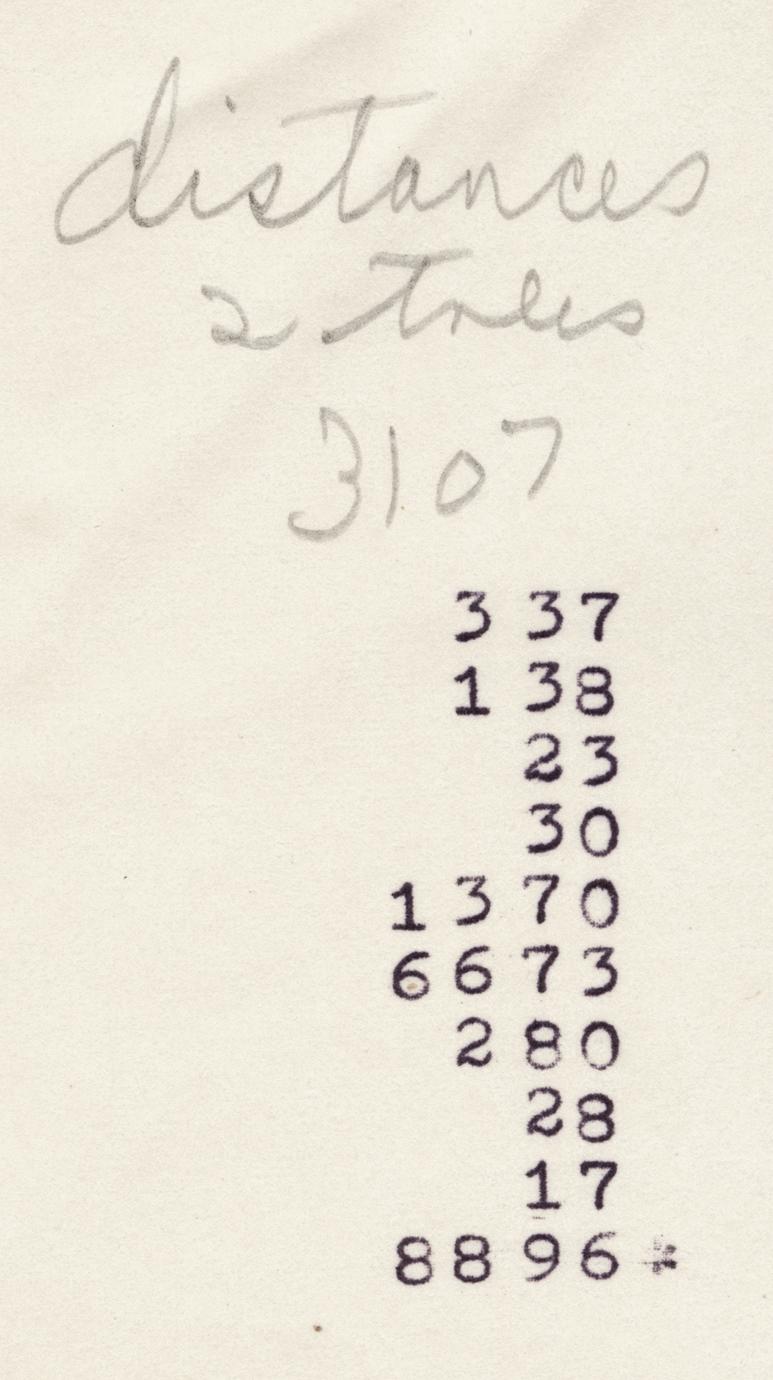 distances
2 trees
3107
3 37
1 38
23
30
1 3 70
6 6 73
2 80
28
17
8 8 96 *